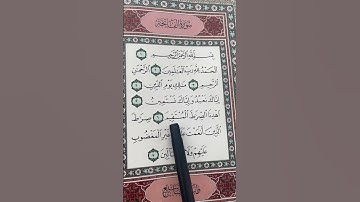 سورة الفاتحة
بسم الله الرحمن الرحيم
الحمد لله رب العالمين الرحمن
الرحيم مالك يوم الدين
إياك نعبد وإياك نستعين
اهدنا الصراط المستقيم صراط
الذين أنعمت غير المغضوب
عليهم ولا الضالين